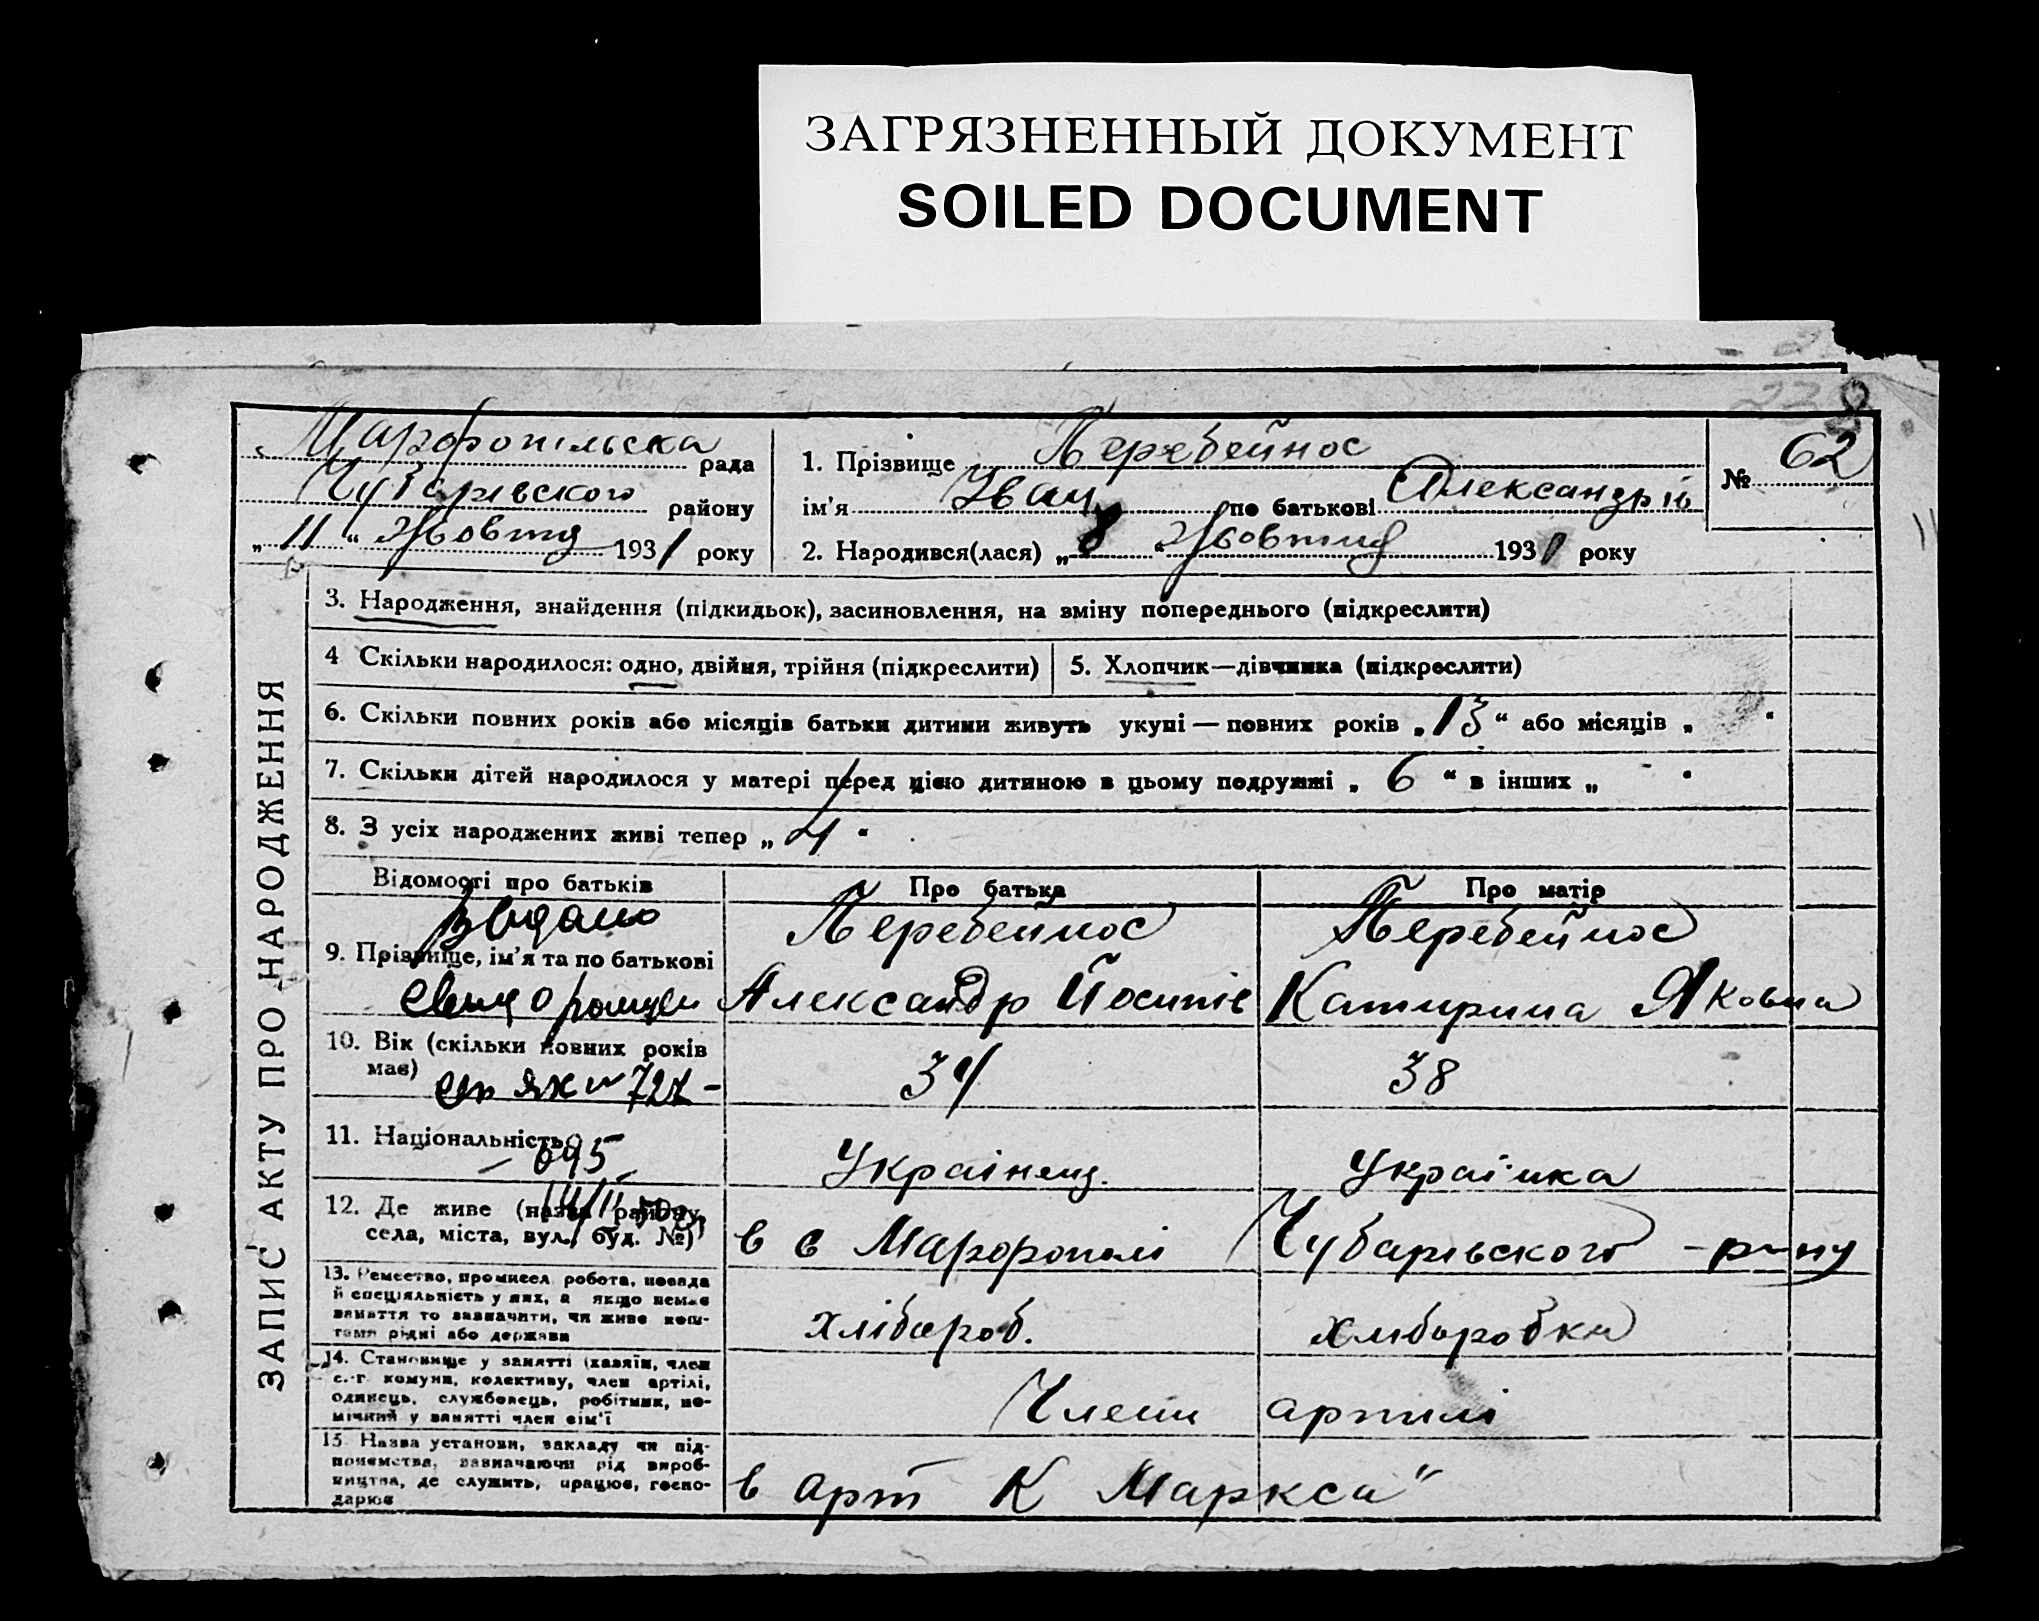 ЗАГРЯЗНЕННЫЙ ДОКУМЕНТ
SOILED DOCUMENT
238
Марфопільска рада
Чубарівського району
„ 11 “ Жовтня 1931 року
1. Прізвище Перебейнос
ім'я Іван по батькові Александрів
2. Народився(лася) „ 8 “ Жовтня 1931 року
№ 62
ЗАПИС АКТУ ПРО НАРОДЖЕННЯ
3. Народження, знайдення (підкидьок), засиновлення, на зміну попереднього (підкреслити)
4 Скільки народилося: одно, двійня, трійня (підкреслити)
5. Хлопчик—дівчинка (підкреслити)
6. Скільки повних років або місяців батьки дитини живуть укупі — повних років „ 13 “ або місяців „ “
7. Скільки дітей народилося у матері перед цією дитиною в цьому подружжі „ 6 “ в інших „ “
8. З усіх народжених живі тепер „ 4 “
Відомості про батьків
Про батька
Про матір
Видано
9. Прізвище, ім'я та по батькові
Перебейнос
Александр Йосипів
Перебейнос
Катирина Яковна
10. Вік (скільки повних років
має)
34
38
11. Національність
695
Українец.
Українка
12. Де живе (назва району,
села, міста, вул., буд. №)
в с Марфополі Чубарівського р-ну
13. Ремество, промисел, робота, посада
й спеціяльність у них, а якщо немає
заняття то зазначити, чи живе кош-
тами рідні або держави
хлібороб.
хліборобка
14. Становище у занятті (хазяїн, член
с.-г комуни, колективу, член артілі,
одинець, службовець, робітник, по-
мічний у занятті член сім'ї
Члени артилі
15 Назва установи, закладу чи під-
приємства, зазначаючи рід вироб-
ництва, де служить, працює, госпо-
дарює
в арт К Маркса"